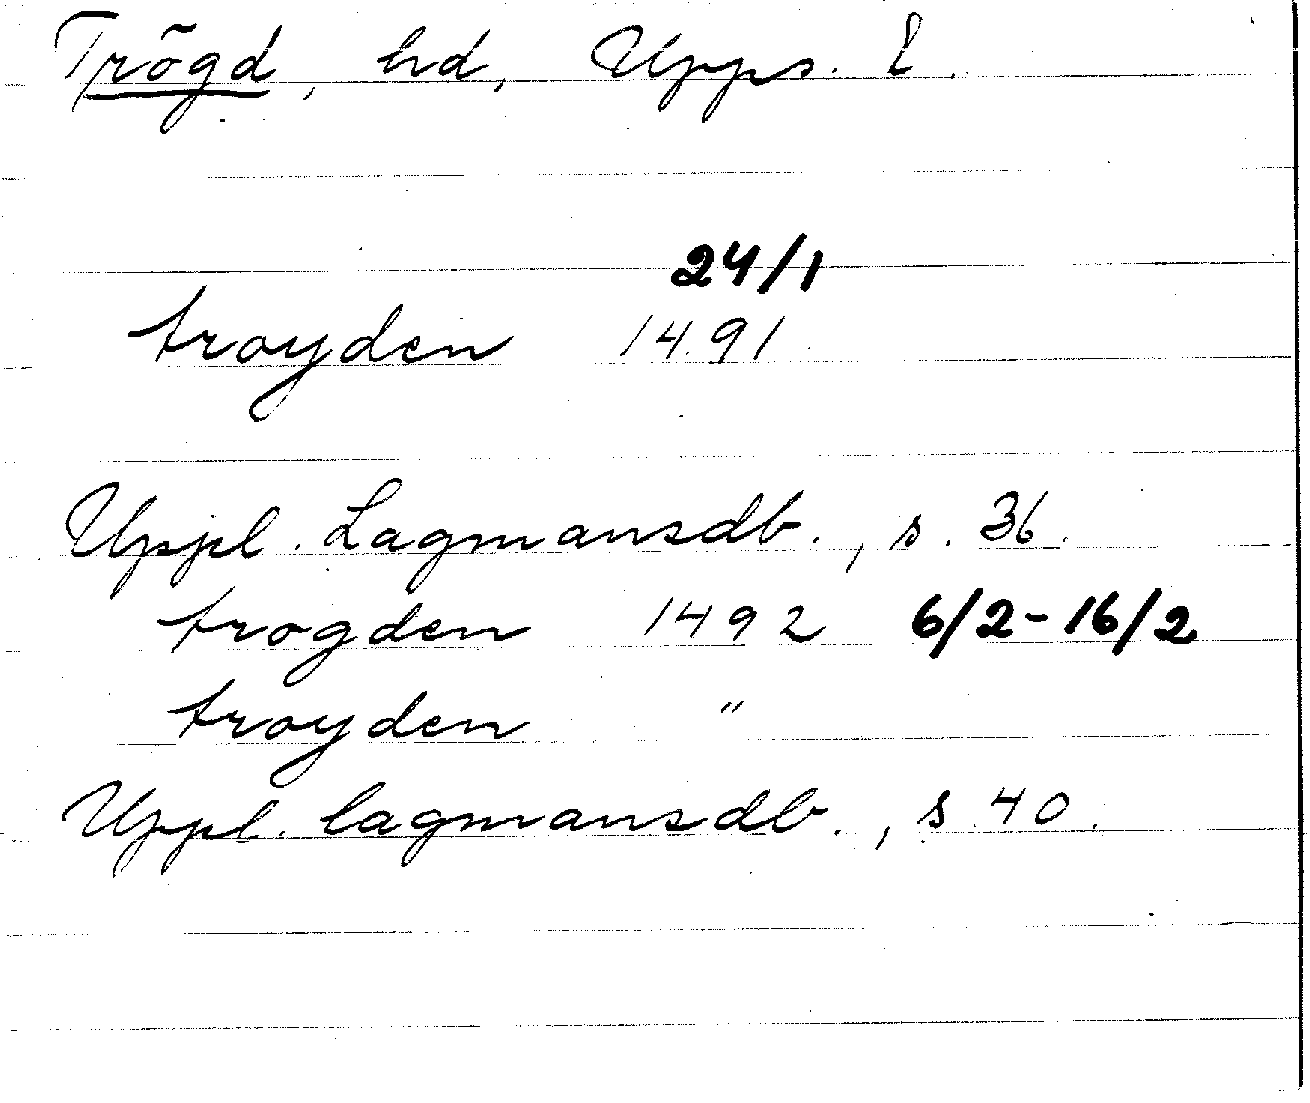 Trögd, hd, Upps. l.
24/1
troyden 1491
Uppl. Lagmansdb., s. 36.
trogden 1492 6/2-16/2
troyden "
Uppl. lagmansdb., s. 40.